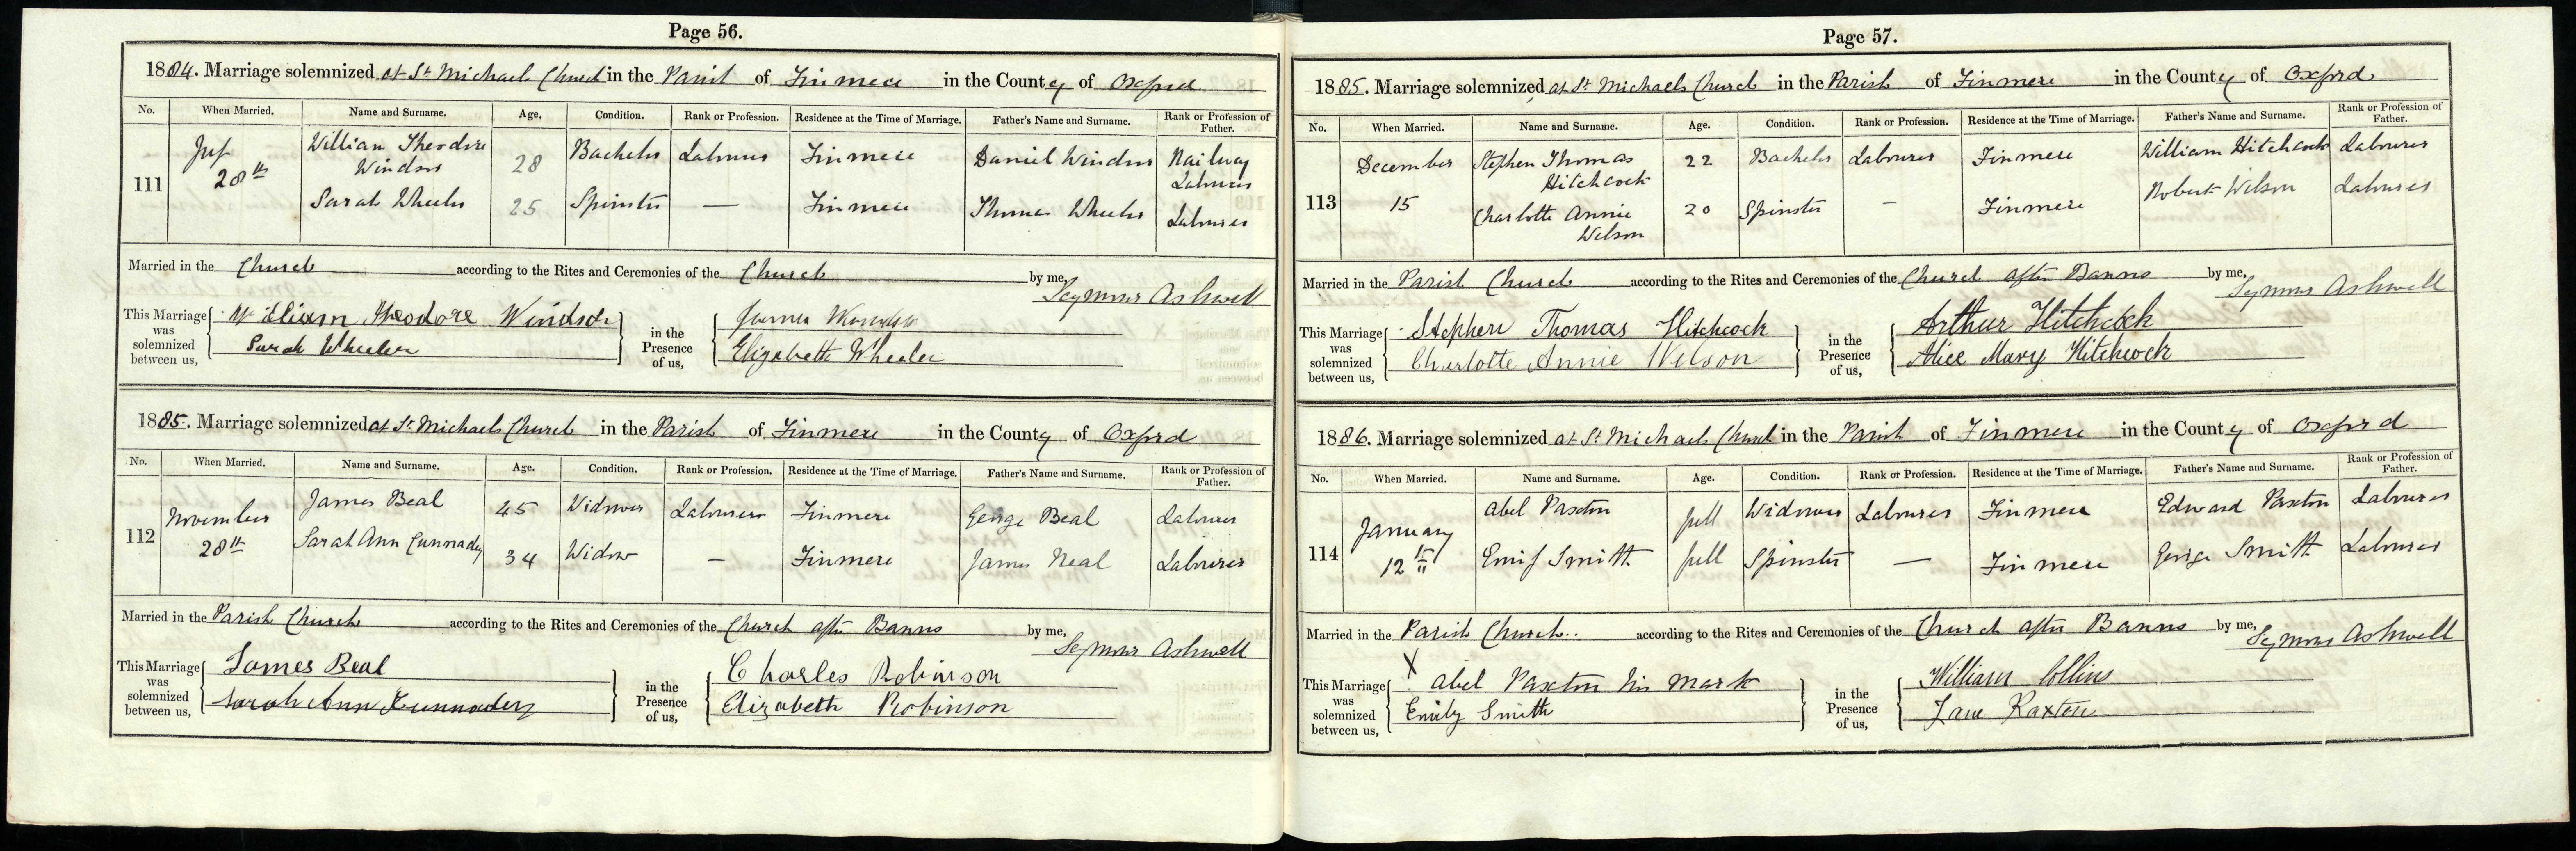 Page 56.
1884. Marriage solemnized at St Michaels Church in the Parish of Finmere in the County of Oxford
No. When Married. Name and Surname. Age. Condition. Rank or Profession. Residence at the Time of Marriage. Father's Name and Surname. Rank or Profession of Father.
111 28th William Theodore Windsor 28 Bachelor Labourer Finmere Daniel Windsor Railway Labourer
Sarah Wheeler 25 Spinster — Finmere Thomas Wheeler Labourer
Married in the Church according to the Rites and Ceremonies of the Church by me, Seymour Ashwell
This Marriage was solemnized between us, William Theodore Windsor
Sarah Wheeler
in the Presence of us,
Elizabeth Wheeler
1885. Marriage solemnized at St Michaels Church in the Parish of Finmere in the County of Oxford
No. When Married. Name and Surname. Age. Condition. Rank or Profession. Residence at the Time of Marriage. Father's Name and Surname. Rank or Profession of Father.
112 November 28th James Beal 45 Widower Labourer Finmere George Beal Labourer
Sarah Ann Cunnady 34 Widow — Finmere James Neal Labourer
Married in the Parish Church according to the Rites and Ceremonies of the Church after Banns by me, Seymour Ashwell
This Marriage was solemnized between us, James Beal
Sarah Ann
in the Presence of us, Charles Robinson
Elizabeth Robinson
Page 57.
1885. Marriage solemnized at St Michaels Church in the Parish of Finmere in the County of Oxford
No. When Married. Name and Surname. Age. Condition. Rank or Profession. Residence at the Time of Marriage. Father's Name and Surname. Rank or Profession of Father.
113 December 15 Stephen Thomas Hitchcock 22 Bachelor Labourer Finmere William Hitchcock Labourer
Charlotte Annie Wilson 20 Spinster — Finmere Robert Wilson Labourer
Married in the Parish Church according to the Rites and Ceremonies of the Church after Banns by me, Seymour Ashwell
This Marriage was solemnized between us, Stephen Thomas Hitchcock
Charlotte Annie Wilson
in the Presence of us, Arthur Hitchcock
Alice Mary Hitchcock
1886. Marriage solemnized at St Michaels Church in the Parish of Finmere in the County of Oxford
No. When Married. Name and Surname. Age. Condition. Rank or Profession. Residence at the Time of Marriage. Father's Name and Surname. Rank or Profession of Father.
114 January 12th Abel Paxton full Widower Labourer Finmere Edward Paxton Labourer
Emily Smith full Spinster — Finmere George Smith Labourer
Married in the Parish Church.. according to the Rites and Ceremonies of the Church after Banns by me, Seymour Ashwell
This Marriage was solemnized between us, X Abel Paxton his mark
Emily Smith
in the Presence of us, William Collins
Jane Paxton